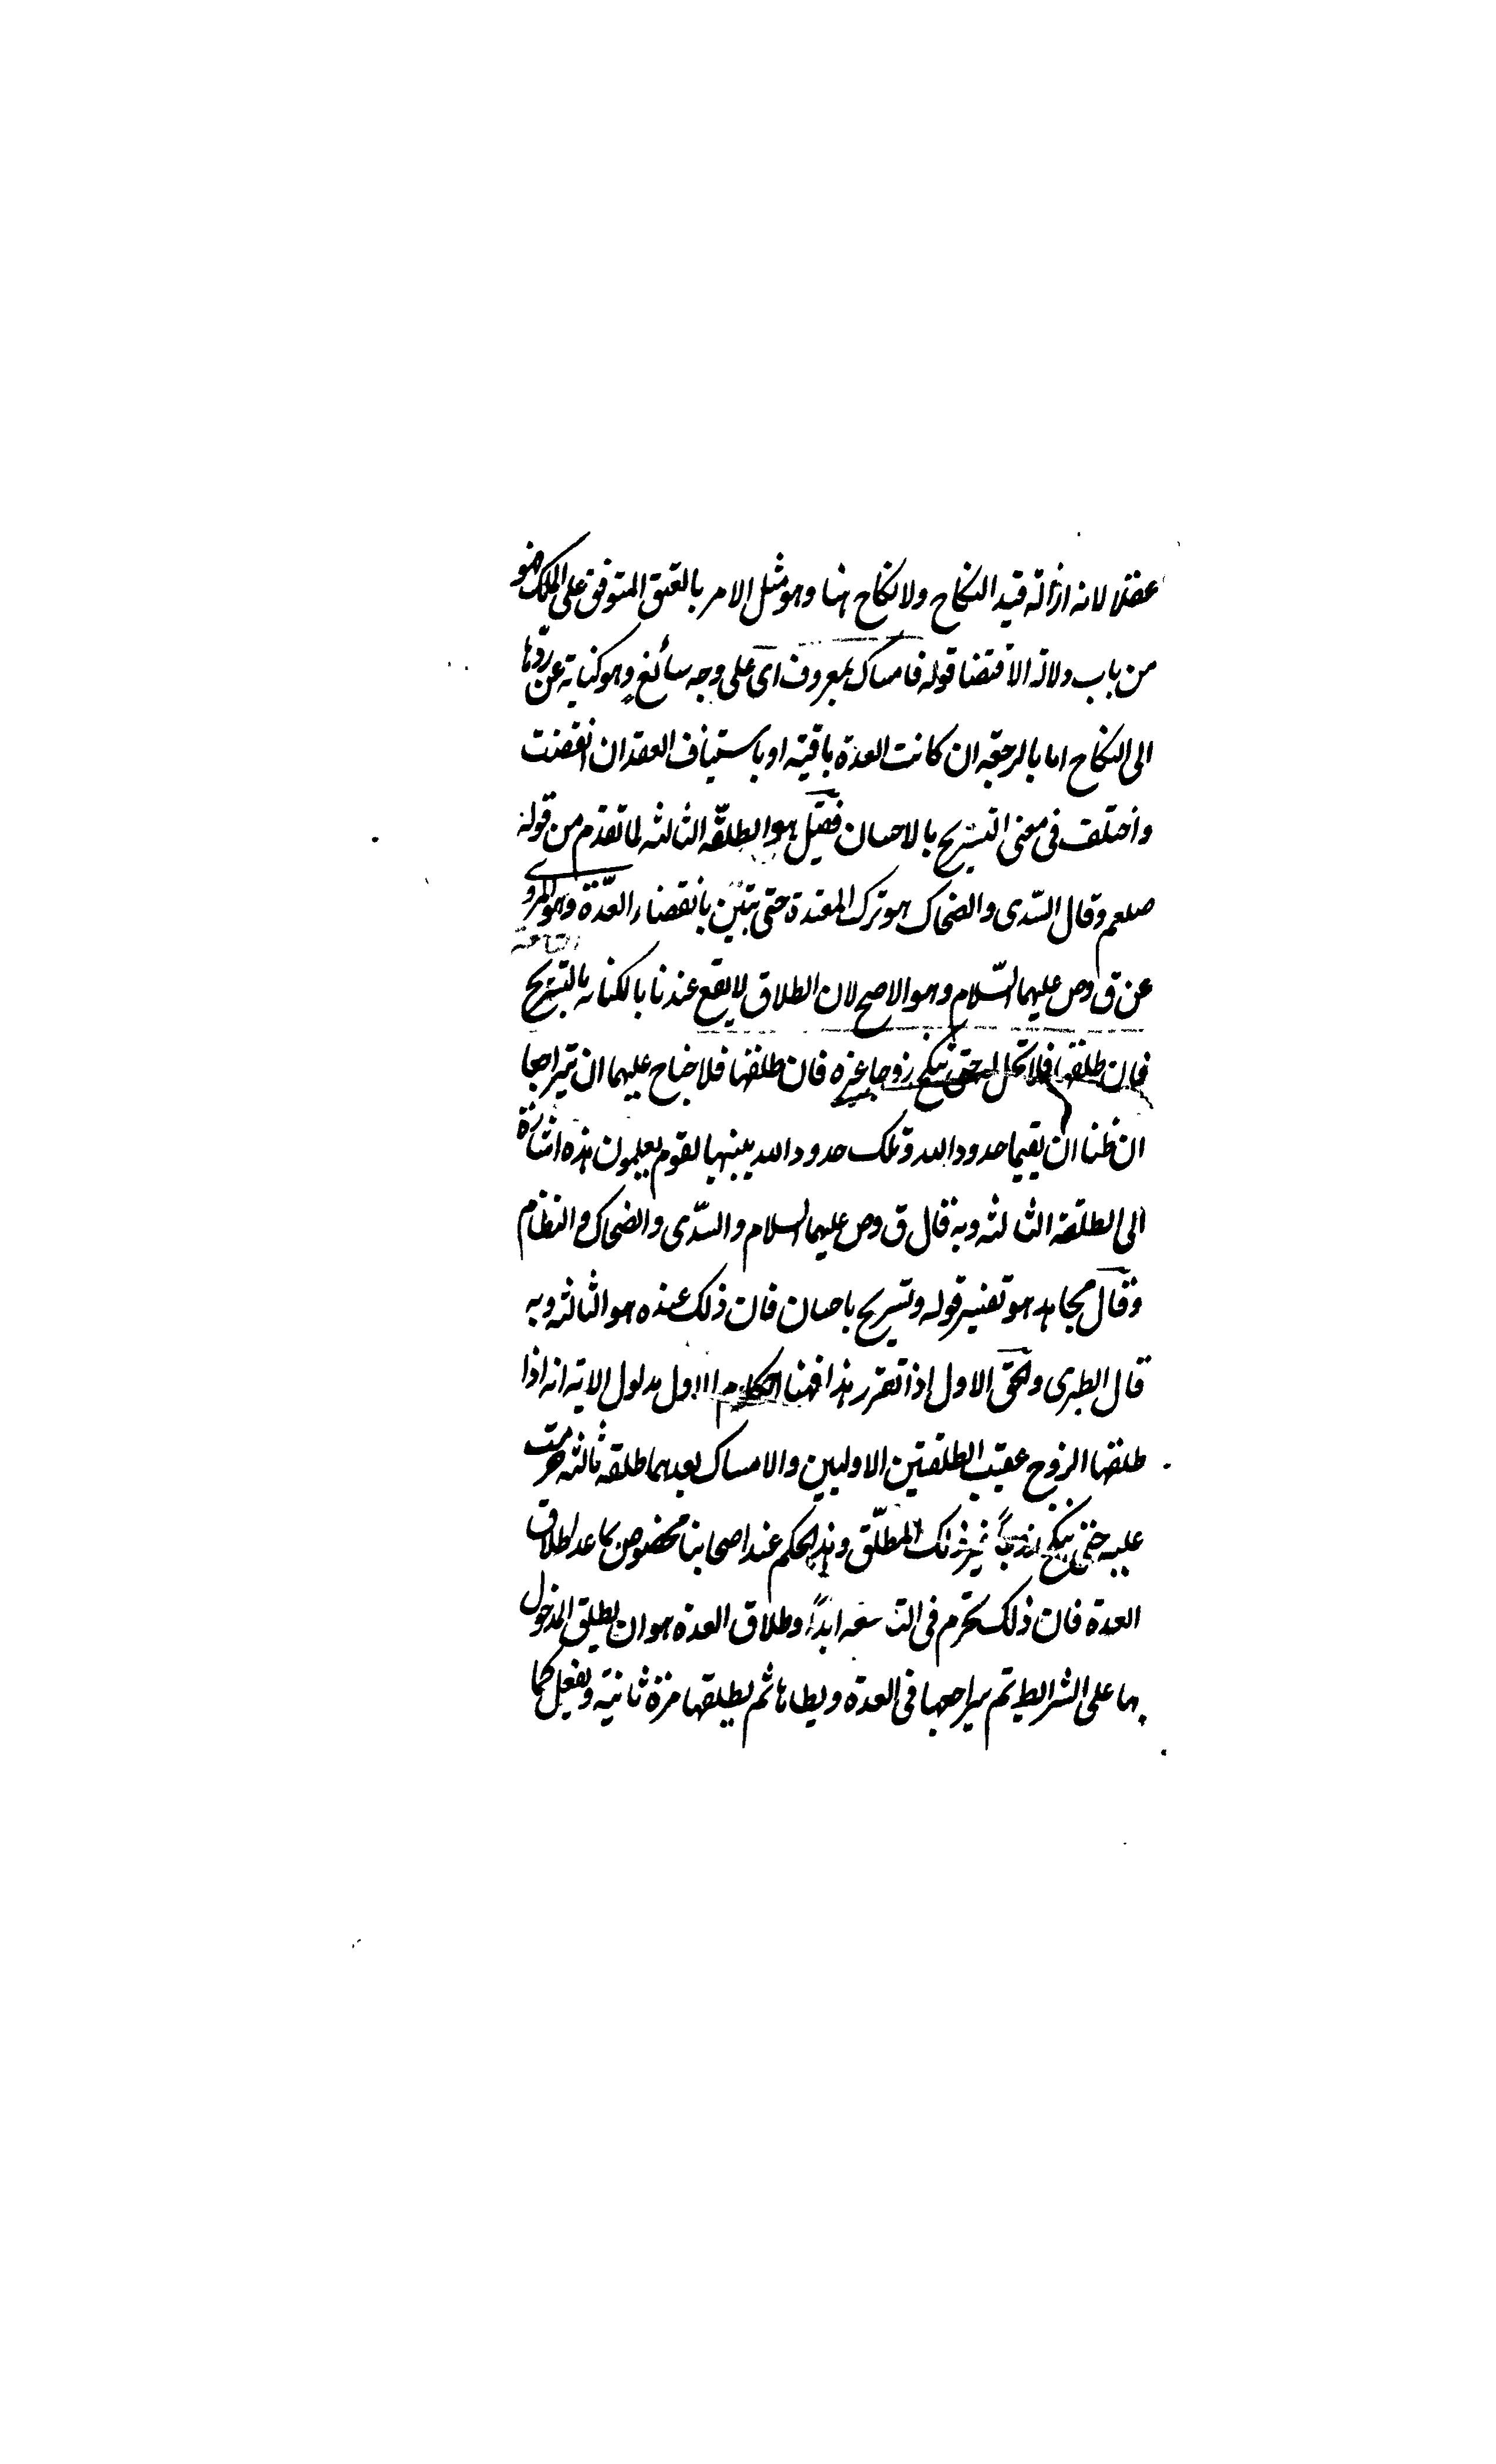 عقلا لانه ازالة قيد النكاح ولا نكاح هنا وهو مثل الامر بالعتق المتوقف على الملك فهو
من باب دلالة الاقتضا قوله فامساك بمعروف اى على وجه سائغ وهو كناية عن ردّها
الى النكاح اما بالرجعة ان كانت العدة باقية او باستيناف العقد ان انقضت
واختلف فى معنى التسريح بالاحسان فقيل هو الطلقة الثالثة لما تقدم من قوله
صلعم وقال السّدى والضحاك هو ترك المعتدة حتى تبين بانقضاء العدّة وهو المروى
عن ق وص عليهما السّلام وهو الاصح لان الطلاق لا يقع عندنا بالكناية بالتسريح
فان طلقها فلا تحل له حتى تنكح زوجا غيره فان طلقها فلا جناح عليهما ان يتراجعا
ان ظنا ان يقيما حدود الله وتلك حدود الله يبينها لقوم يعلمون هذه اشارة
الى الطلقة الثالثة وبه قال ق وص عليهما السلام والسّدى والضحاك والنظام
وقال مجاهد هو تفسير قوله وتسريح باحسان فان ذلك عنده هو الثالثة وبه
قال الطبرى والحق الاول اذا تقرر هذا فهنا احكام الاول مدلول الاية انه اذا
طلقها الزوج عقيب الطلقتين الاوليين والامساك بعدهما طلقة ثالثة حرمت
عليه حتى تنكح زوجاً غير ذلك المطلّق وهذا الحكم عند اصحابنا مخصوص بما عدا طلاق
العدة فان ذلك يحرم فى التاسعة ابداً وطلاق العدة هو ان يطلق المدخول
بها على الشرائط ثم يراجعها فى العدة ويطاها ثم يطلقها مرة ثانية ويفعل كما